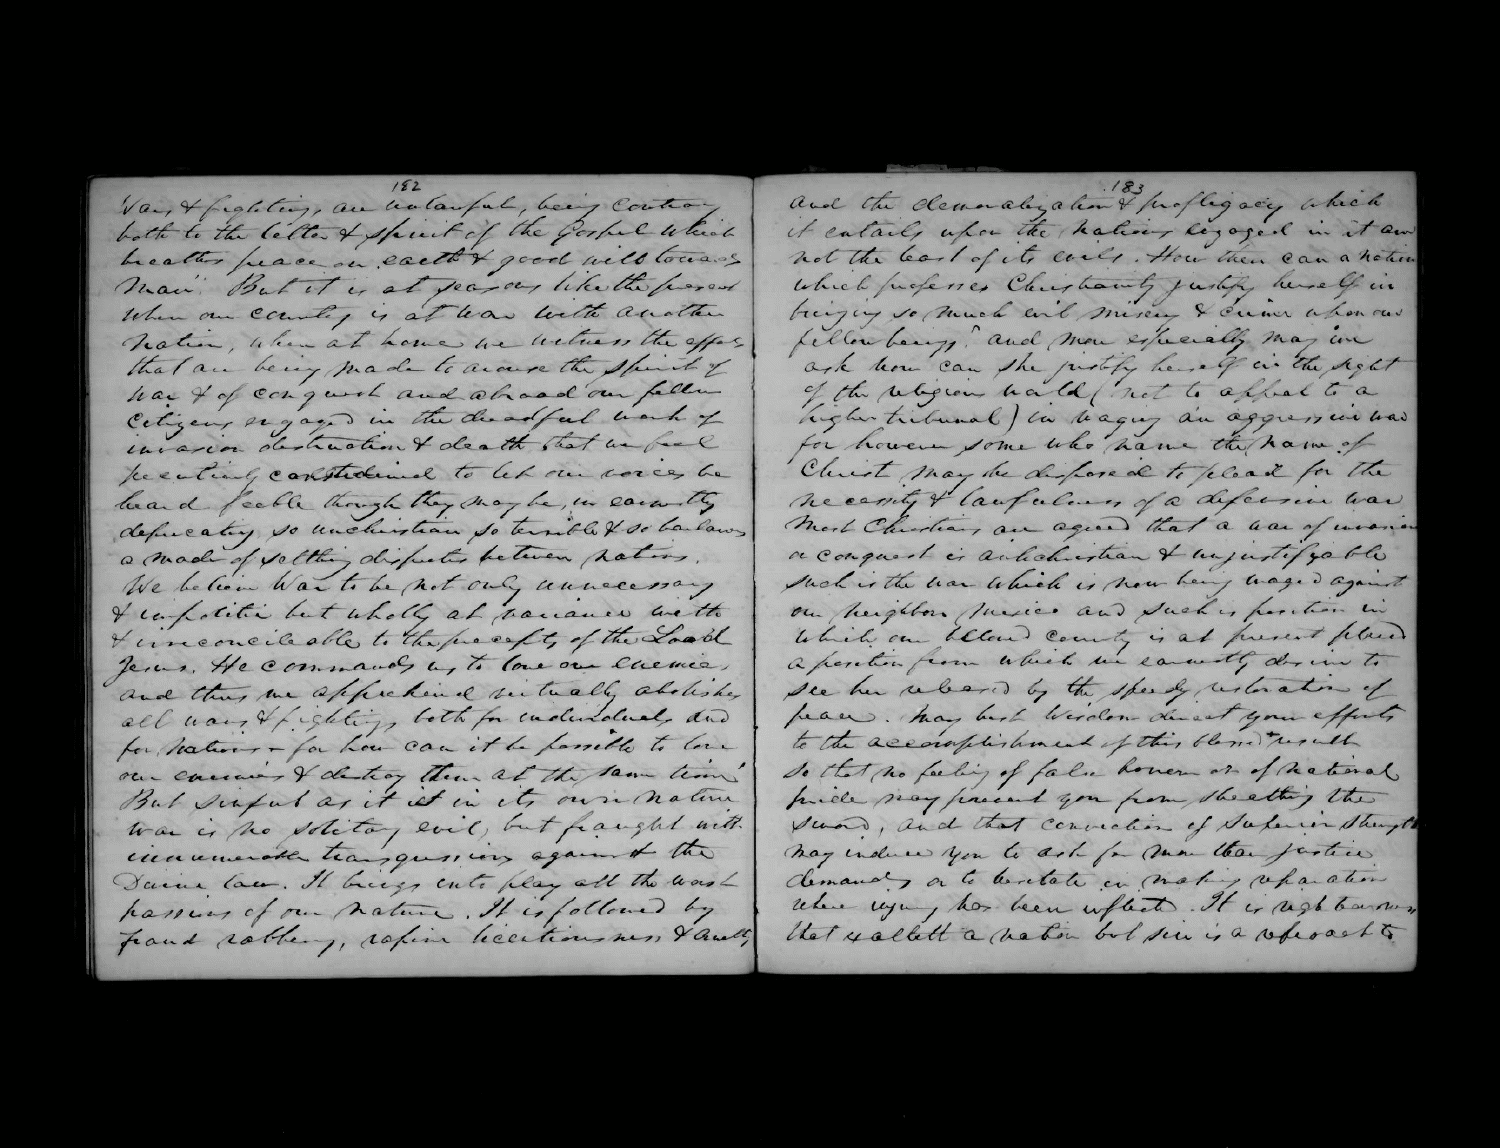 182
Wars & fightings are unlawful, being contrary
both to the letter & spirit of the Gospel which
breathes peace on earth & good will towards
man". But it is at seasons like the present
when our country is at war with another
nation, when at home we witness the efforts
that are being made to arouse the spirit of
war & of conquest and abroad our fellow
citizens engaged in the dreadful work of
invasion destruction & death that we feel
peculiarly constrained to let our voices be
heard feeble though they may be, in earnestly
deprecating so unchristian so terrible & so barbarous
a mode of settling disputes between nations.
We believe War to be not only unnecessary
& impolitic but wholly at variance with
& irreconcileable to the precepts of the Lord
Jesus. He commands us to love our enemies,
and thus we apprehend virtually abolishes
all wars & fightings both for individuals and
for nations - for how can it be possible to love
our enemies & destroy them at the same time?
But sinful as it is in its own nature
war is no solitary evil, but fraught with
innumerable transgressions against the
Divine law. It brings into play all the worst
passions of our nature. It is followed by
fraud robbery, rapine licentiousness & cruelty
183
and the demoralization & profligacy which
it entails upon the nations engaged in it are
not the least of its evils. How then can a nation
which professes Christianity justify herself in
bringing so much evil misery & crime upon our
fellow beings? and more especially may we
ask how can she justify herself in the sight
of the religious world (not to appeal to a
higher tribunal) in waging an aggressive war
for however some who name the name of
Christ may be disposed to plead for the
necessity & lawfulness of a defensive war
most Christians are agreed that a war of invasion
or conquest is antichristian & unjustifyable
such is the war which is now being waged against
our neighbor Mexico and such is position in
which our beloved country is at present placed
a position from which we earnestly desire to
see her released by the speedy restoration of
peace. May best Wisdom direct your efforts
to the accomplishment of this blessed result
so that no feeling of false honor or of national
pride may prevent you from sheathing the
sword, and that conviction of superior strength
may induce you to ask for more than justice
demands or to hesitate in making reparation
where injury has been inflicted. It is righteousness
that exalteth a nation but sin is a reproach to